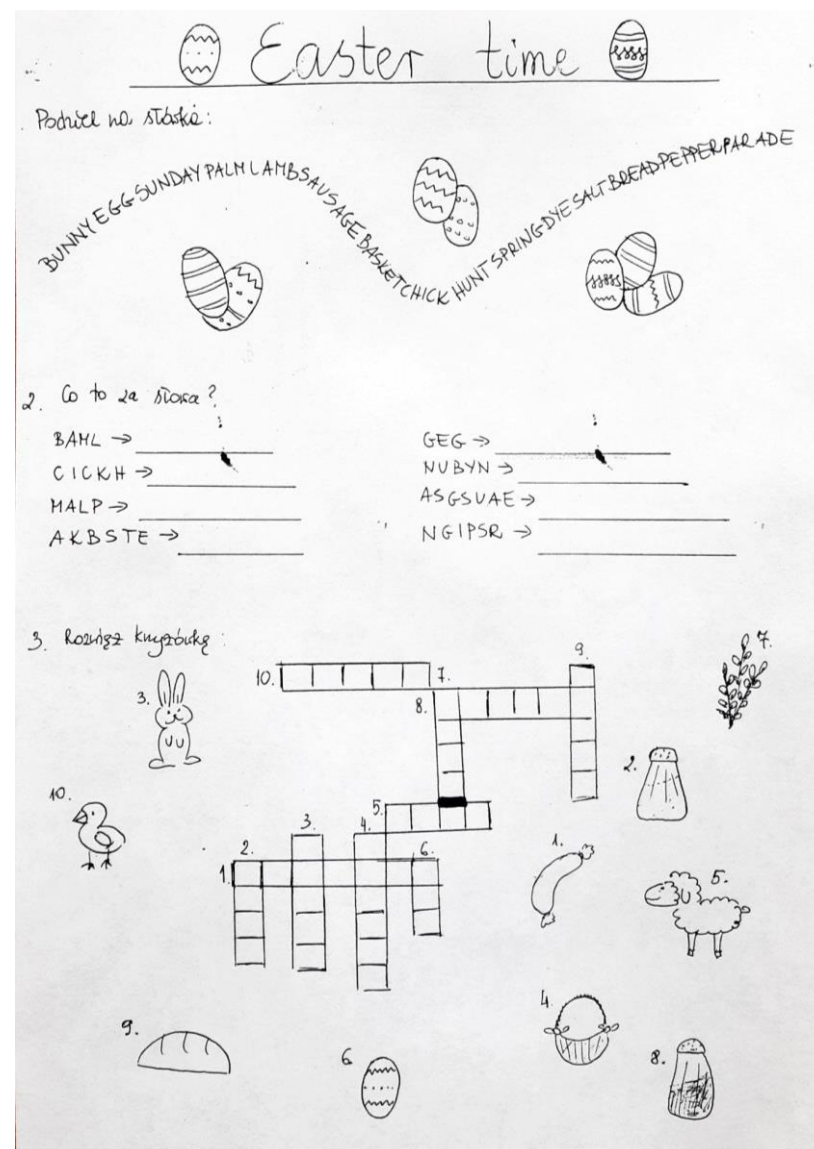 Easter time
Podziel na słówka:
BUNNYEGGSUNDAYPALMLAMBSAUSAGEBASKETCHICKHUNTSPRINGDYESALTBREADPEPPERPARADE
2. Co to za słowa?
BAML →
GEG →
CICKH →
NUBYN →
MALP →
ASGSUAE →
AKBSTE →
NGIPSR →
3. Rozwiąż krzyżówkę:
7.
9.
10.
7.
3.
8.
2.
10.
5.
3.
4.
1.
2.
6.
5.
1.
4.
9.
6
8.